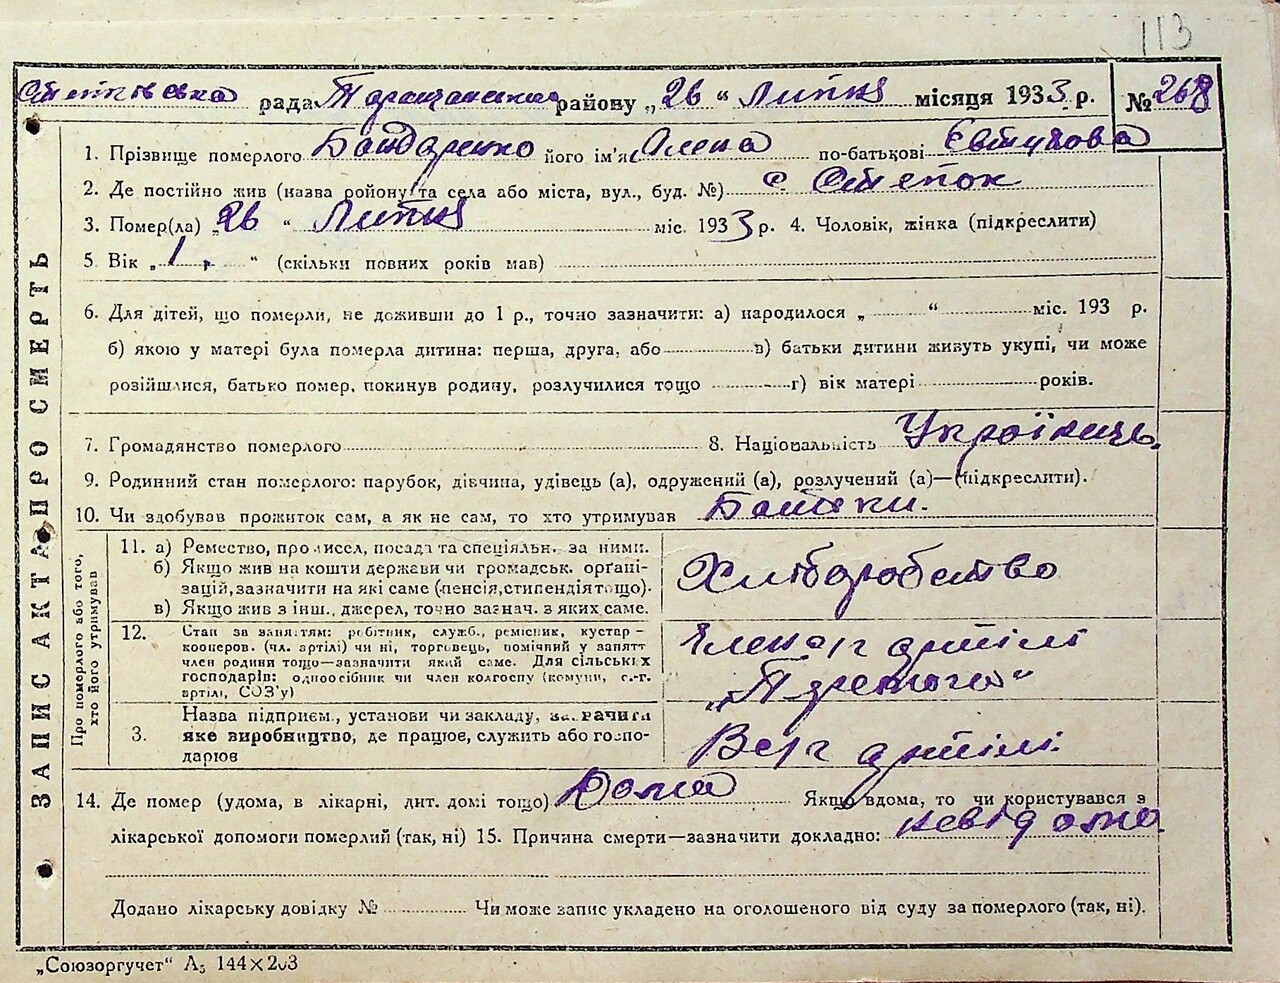 113
Степківська рада Таращанського району „26“ Липня місяця 1933 р. № 268
1. Прізвище померлого Бондаренко його ім'я Олена по-батькові Євтухова
2. Де постійно жив (назва ройону та села або міста, вул., буд. №) с Степок
3. Помер(ла) „26“ Липня міс. 1933 р. 4. Чоловік, жінка (підкреслити)
5. Вік „1 р.“ (скільки повних років мав)
6. Для дітей, що померли, не доживши до 1 р., точно зазначити: а) народилося „ “ міс. 193 р.
б) якою у матері була померла дитина: перша, друга, або в) батьки дитини живуть укупі, чи може
розійшлися, батько помер, покинув родину, розлучилися тощо г) вік матері років.
7. Громадянство померлого 8. Національність Українць.
9. Родинний стан померлого: парубок, дівчина, удівець (а), одружений (а), розлучений (а)—(підкреслити).
10. Чи здобував прожиток сам, а як не сам, то хто утримував Батьки.
ЗАПИС АКТА ПРО СМЕРТЬ
Про померлого або того, хто його утримував
11. а) Ремество, промисел, посада та спеціяльн. за ними.
б) Якщо жив на кошти держави чи громадськ. орґані-
зацій, зазначити на які саме (пенсія, стипендія тощо).
в) Якщо жив з інш., джерел, точно зазнач. з яких саме.
Хліборобство
12. Стан за заняттям: робітник, служб., ремісник, кустар-
кооперов. (чл. артілі) чи ні, торговець, помічний у занятт
член родини тощо—зазначити який саме. Для сільських
господарів: одноосібник чи член колгоспу (комуни, с.-г.
артілі, СОЗ'у)
Член артілі
3. Назва підприєм., установи чи закладу, зазначити
яке виробництво, де працює, служить або госпо-
дарює
артілі
14. Де помер (удома, в лікарні, дит. домі тощо) Дома Якщо вдома, то чи користувався з
лікарської допомоги померлий (так, ні) 15. Причина смерти—зазначити докладно: невідома
Додано лікарську довідку № Чи може запис укладено на оголошеного від суду за померлого (так, ні).
„Союзоргучет“ А5 144×203